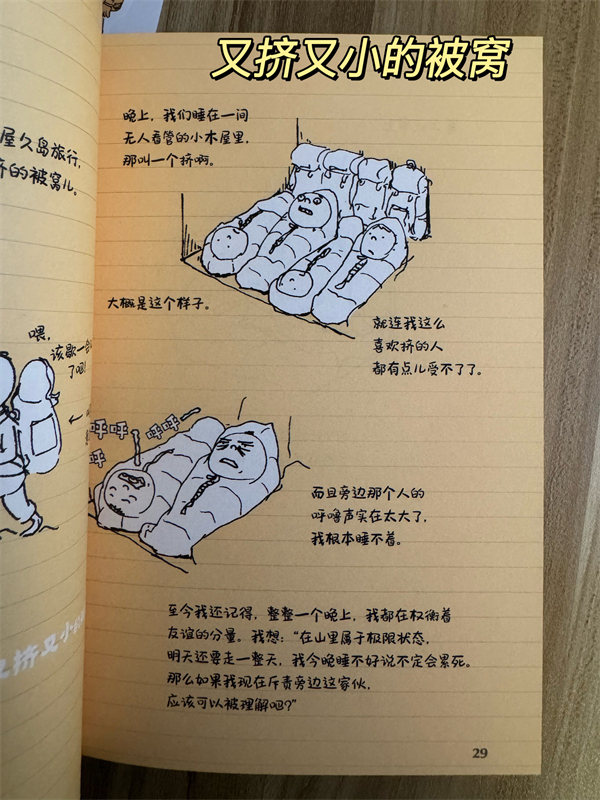 又挤又小的被窝
屋久岛旅行,
挤的被窝儿。
晚上,我们睡在一间
无人看管的小木屋里,
那叫一个挤啊。
大概是这个样子。
就连我这么
喜欢挤的人
都有点儿受不了了。
喂,
该歇一会
了吧!
呼呼
呼呼
呼
而且旁边那个人的
呼噜声实在太大了,
我根本睡不着。
至今我还记得,整整一个晚上,我都在权衡着
友谊的分量。我想:“在山里属于极限状态,
明天还要走一整天,我今晚睡不好说不定会累死。
那么如果我现在斥责旁边这家伙,
应该可以被理解吧?”
又挤又小
29